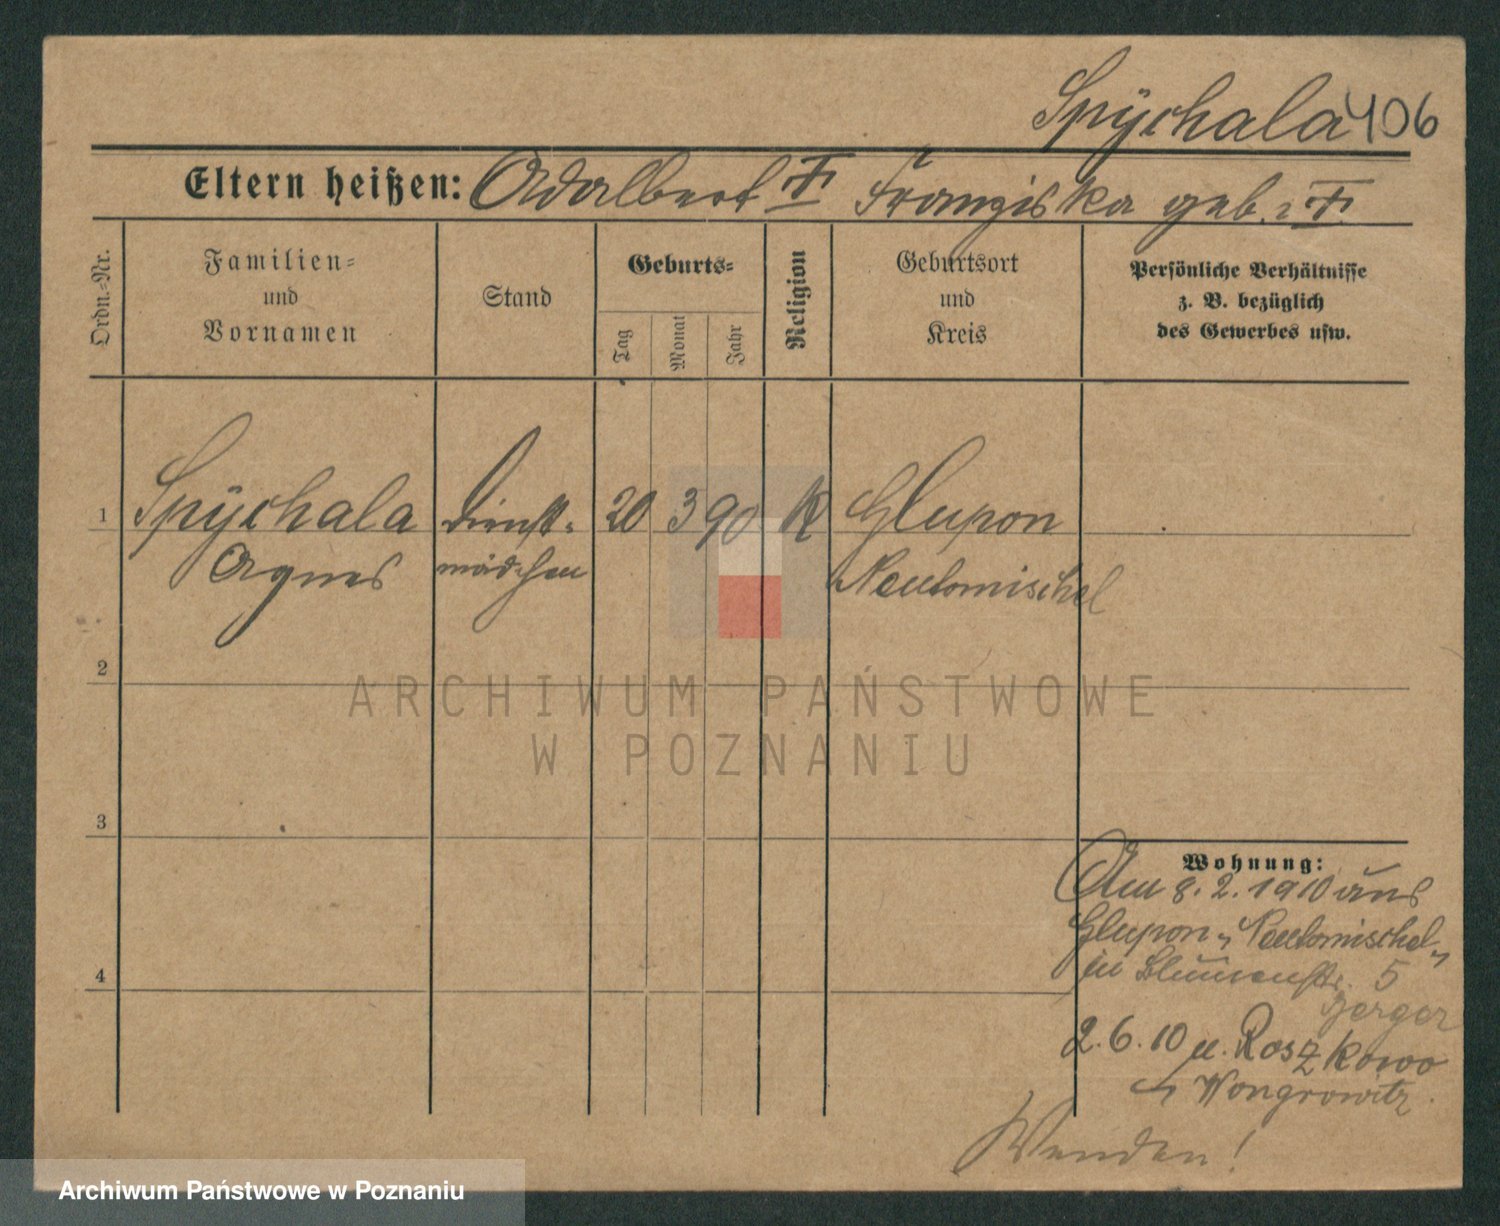 Spÿchala 406
Eltern heißen: Adalbert † Franziska geb. ? †
Ordn.-Nr.
Familien-
und
Vornamen
Stand
Geburts-
Tag
Monat
Jahr
Religion
Geburtsort
und
Kreis
Persönliche Verhältnisse
z. B. bezüglich
des Gewerbes usw.
1 Spÿchala Dienst- 20 3 90 K Glupon
Agnes mädchen Neutomischel
2
ARCHIWUM PAŃSTWOWE
W POZNANIU
3
Wohnung:
Am 8. 2. 1910 aus
Glupon, Neutomischel,
in Blumenstr. 5
Berger
2. 6. 10 n. Roszkowo
Wongrowitz.
4
Wenden!
Archiwum Państwowe w Poznaniu